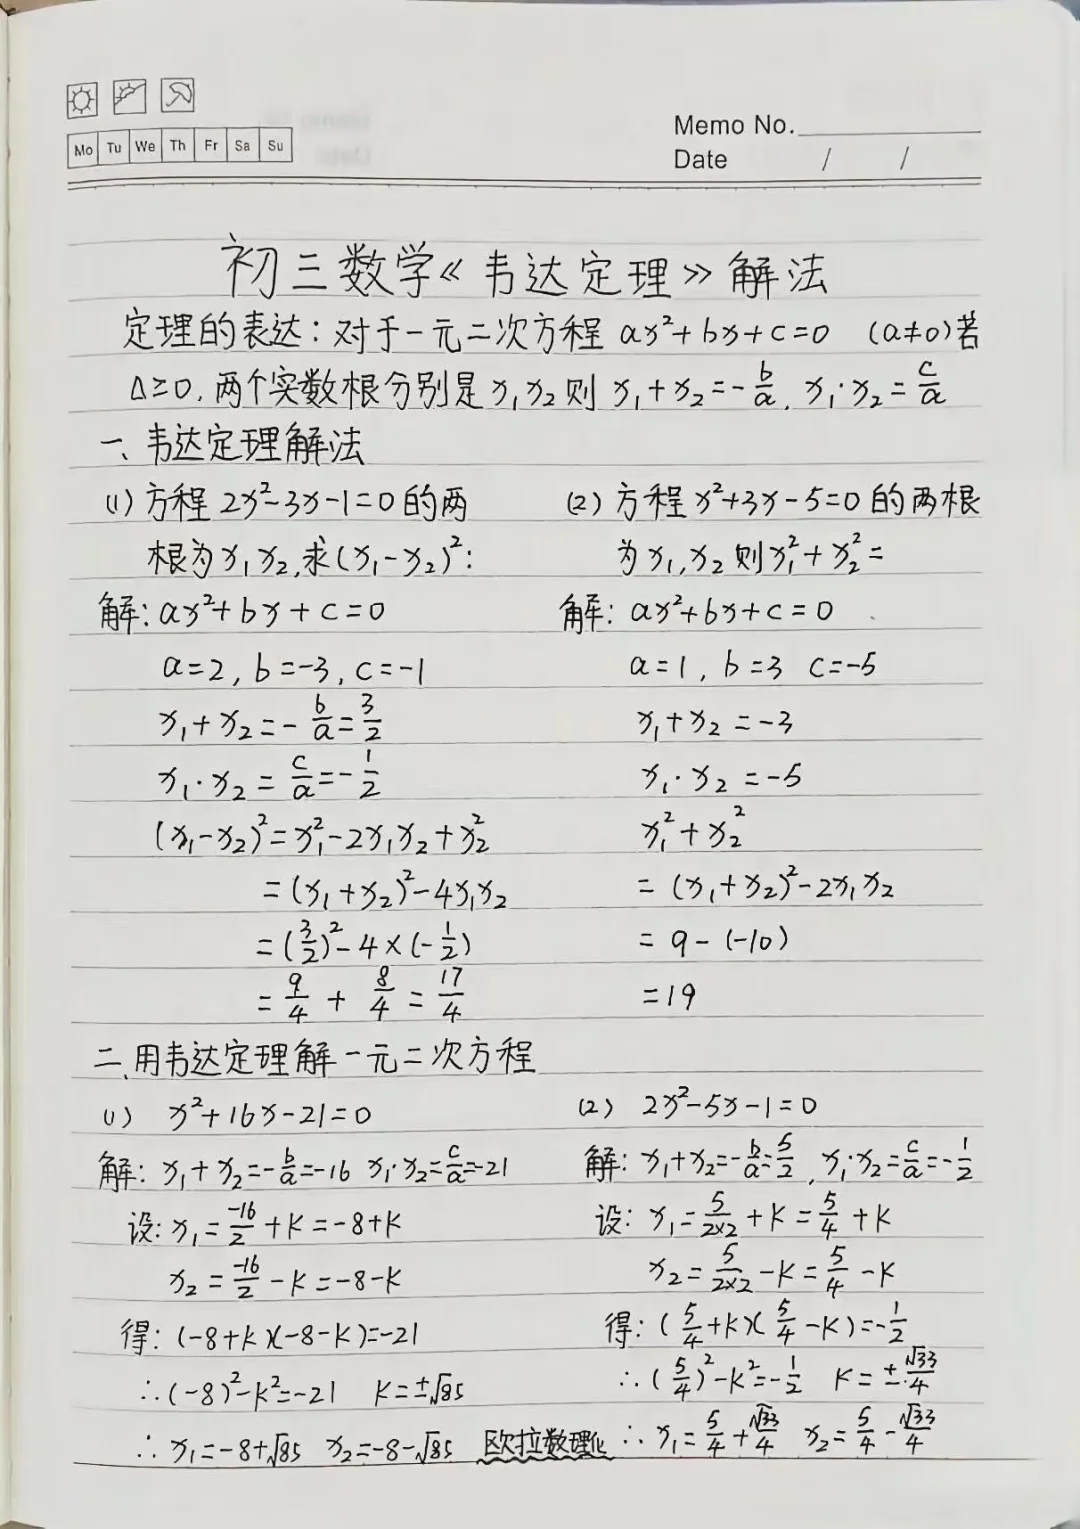 Mo Tu We Th Fr Sa Su
Memo No.
Date / /
初三数学《韦达定理》解法
定理的表达:对于一元二次方程 ax²+bx+c=0 (a≠0)若
Δ≥0,两个实数根分别是 x₁x₂则 x₁+x₂=-b/a, x₁·x₂=c/a
一、韦达定理解法
(1) 方程 2x²-3x-1=0 的两
根为x₁x₂,求(x₁-x₂)²:
解:ax²+bx+c=0
a=2, b=-3, c=-1
x₁+x₂=-b/a=3/2
x₁·x₂=c/a=-1/2
(x₁-x₂)²=x₁²-2x₁x₂+x₂²
=(x₁+x₂)²-4x₁x₂
=(3/2)²-4×(-1/2)
=9/4+8/4=17/4
(2) 方程 x²+3x-5=0 的两根
为x₁,x₂则x₁²+x₂²=
解:ax²+bx+c=0
a=1, b=3 c=-5
x₁+x₂=-3
x₁·x₂=-5
x₁²+x₂²
=(x₁+x₂)²-2x₁x₂
=9-(-10)
=19
二、用韦达定理解一元二次方程
(1) x²+16x-21=0
解:x₁+x₂=-b/a=-16 x₁·x₂=c/a=-21
设:x₁=-16/2+K=-8+K
x₂=-16/2-K=-8-K
得:(-8+K)(-8-K)=-21
∴(-8)²-K²=-21 K=±√85
∴x₁=-8+√85 x₂=-8-√85
欧拉数理化
(2) 2x²-5x-1=0
解:x₁+x₂=-b/a=5/2, x₁·x₂=c/a=-1/2
设:x₁=5/2×2+K=5/4+K
x₂=5/2×2-K=5/4-K
得:(5/4+K)(5/4-K)=-1/2
∴(5/4)²-K²=-1/2 K=±√33/4
∴x₁=5/4+√33/4 x₂=5/4-√33/4